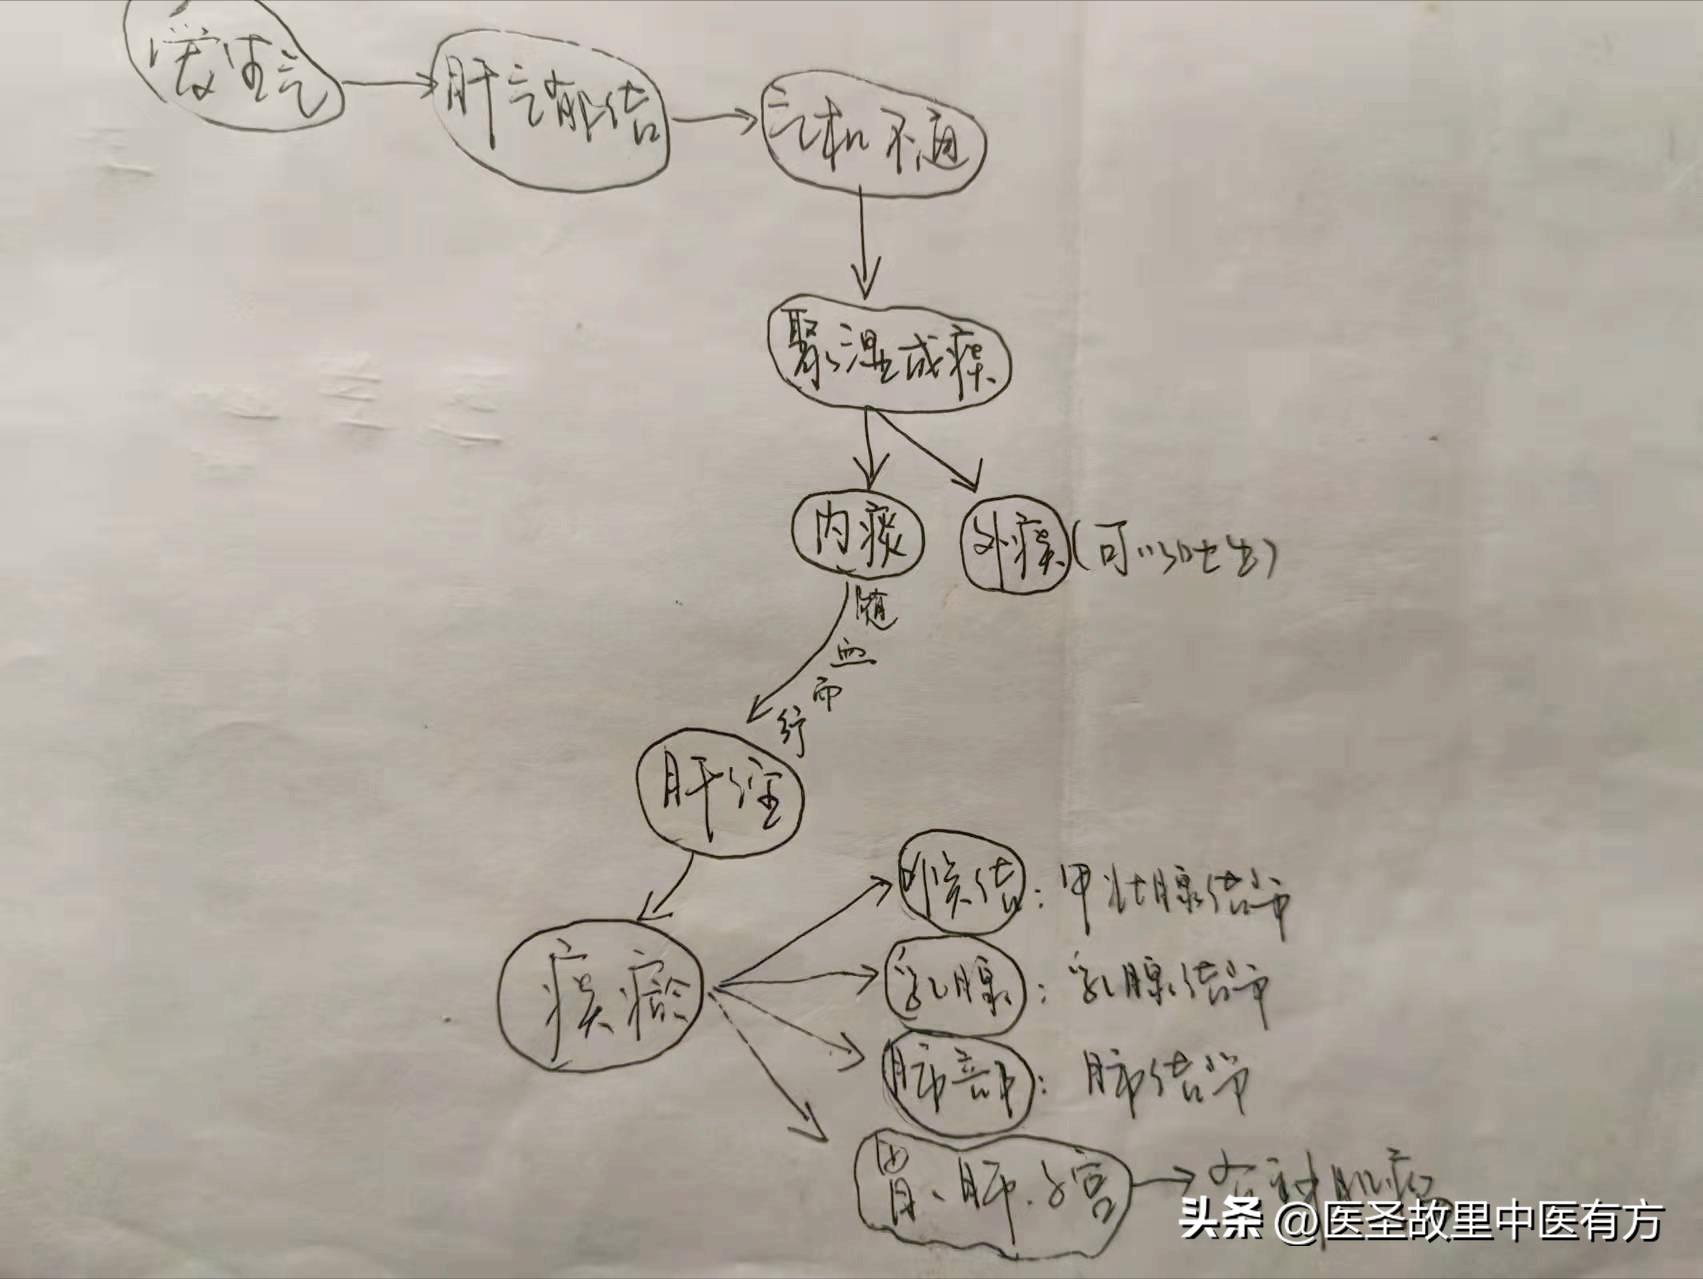 爱生气
肝气郁结
气机不通
聚湿成痰
内痰
外痰(可以吐出)
随血而行
肝经
痰瘀
喉结:甲状腺结节
乳腺:乳腺结节
肺部:肺结节
胃、肺、子宫
各种肌瘤
头条 @医圣故里中医有方